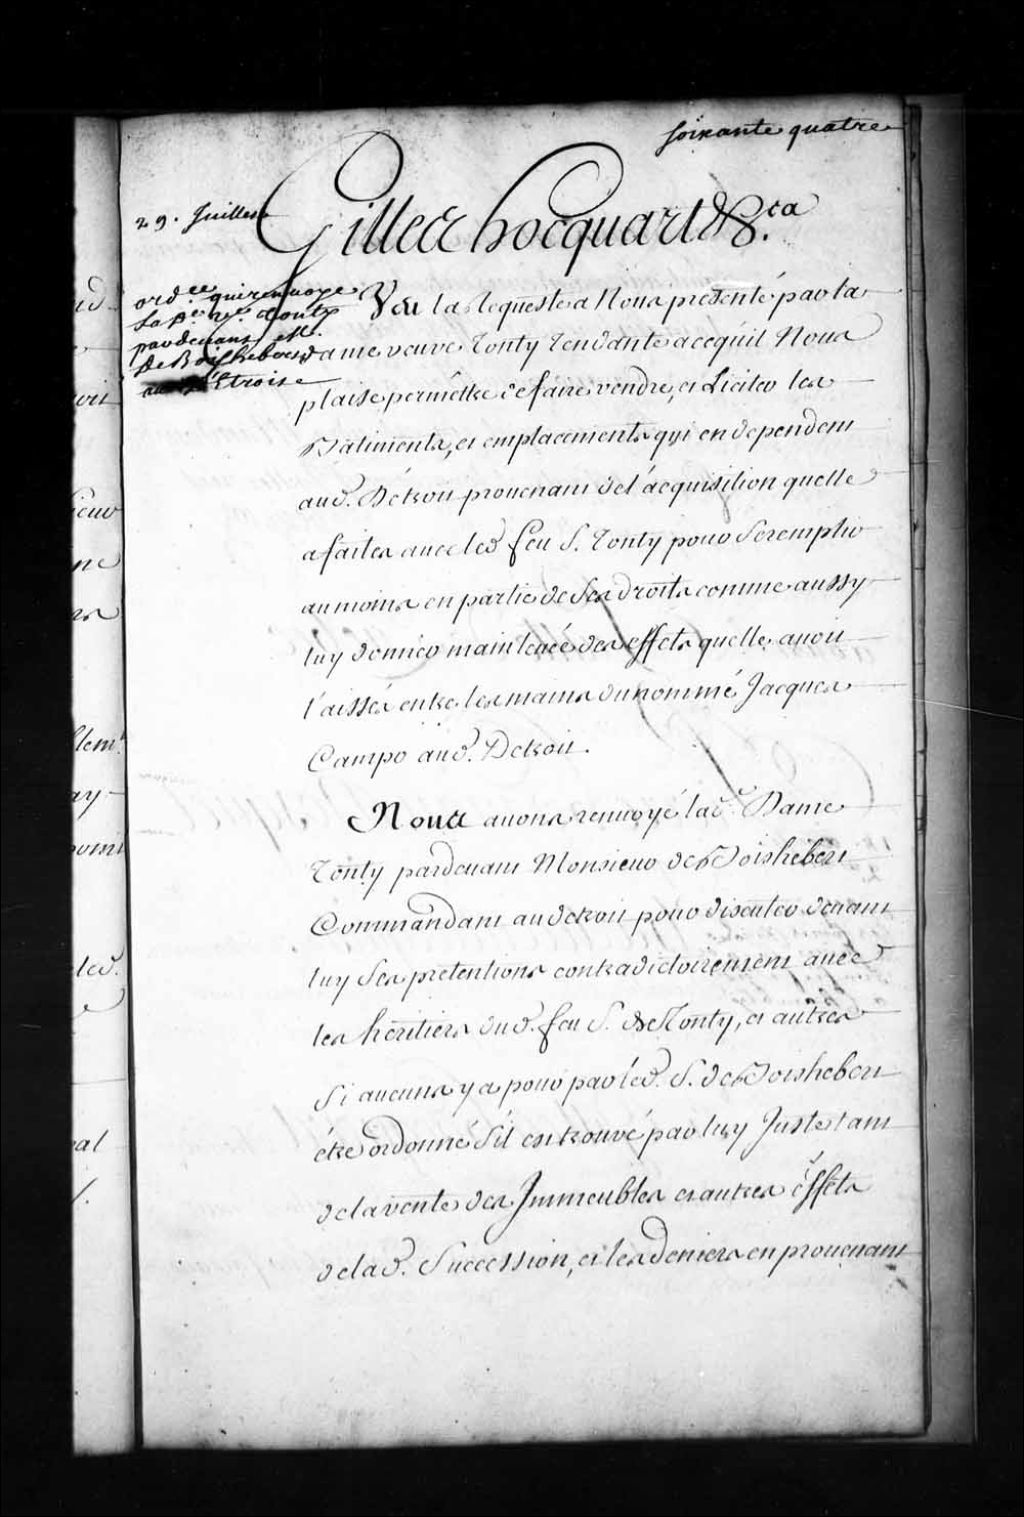 soixante quatre
29. Juillet
Gilles hocquart &.ca
ord.ce qui renvoye
la D.e v.e Tonty
pardevant M.
De Boishebert
au Détroit
Veu la Requeste a Nous presenté par la
dame veuve Tonty Tendante a cequil Nous
plaise permêttre de faire vendre, et Liciter les
Batiments, et emplacements qui en dependent
aud. Détroit provenant de l'acquisition quelle
a faites avec led feu S. Tonty pour Seremplir
au moins en partie de Ses droits comme aussy
luy donner mainlevée des effets quelle avoit
laissés entre les mains du nommé Jacques
Campo aud. Detroit.
Nous avons renvoyé lad. Dame
Tonty pardevant Monsieur de Boishebert
Commandant au detroit pour discuter devant
luy Ses pretentions contradictoirement avec
les héritiers dud. feu S. de Tonty, et autres
Si aucuns y a pour par led. S. de Boishebert
être ordonné S'il est trouvé par luy Juste tant
de la vente des Immeubles et autres éffets
de lad. Succession, et les deniers en provenant
ne
ay
led.
al